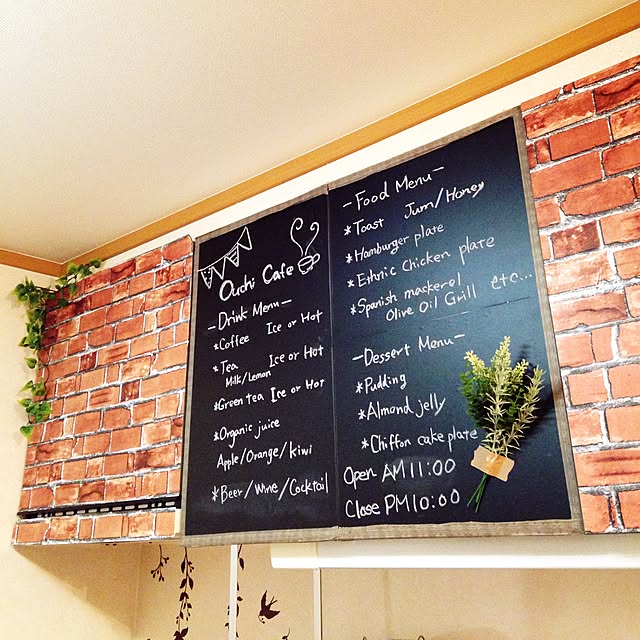 Ouchi Cafe
—Drink Menu—
*Coffee Ice or Hot
*Tea Ice or Hot
Milk/Lemon
*Green tea Ice or Hot
*Organic juice
Apple/Orange/kiwi
*Beer/Wine/Cocktail
—Food Menu—
*Toast Jum/Honey
*Hamburger plate
*Ethnic Chicken plate
*Spanish maskerol
Olive Oil Grill etc...
—Dessert Menu—
*Pudding
*Almond jelly
*Chiffon cake plate
Open AM 11:00
Close PM 10:00